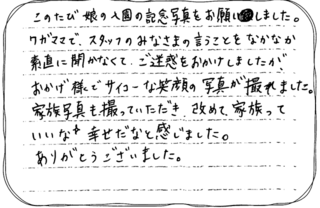 このたび娘の入園の記念写真をお願いしました。
ワガママで、スタッフのみなさまの言うことをなかなか
素直に聞かなくて、ご迷惑をおかけしましたが
おかげ様でサイコーな笑顔の写真が撮れました。
家族写真も撮っていただき、改めて、家族って
いいな 幸せだなと感じました。
ありがとうございました。